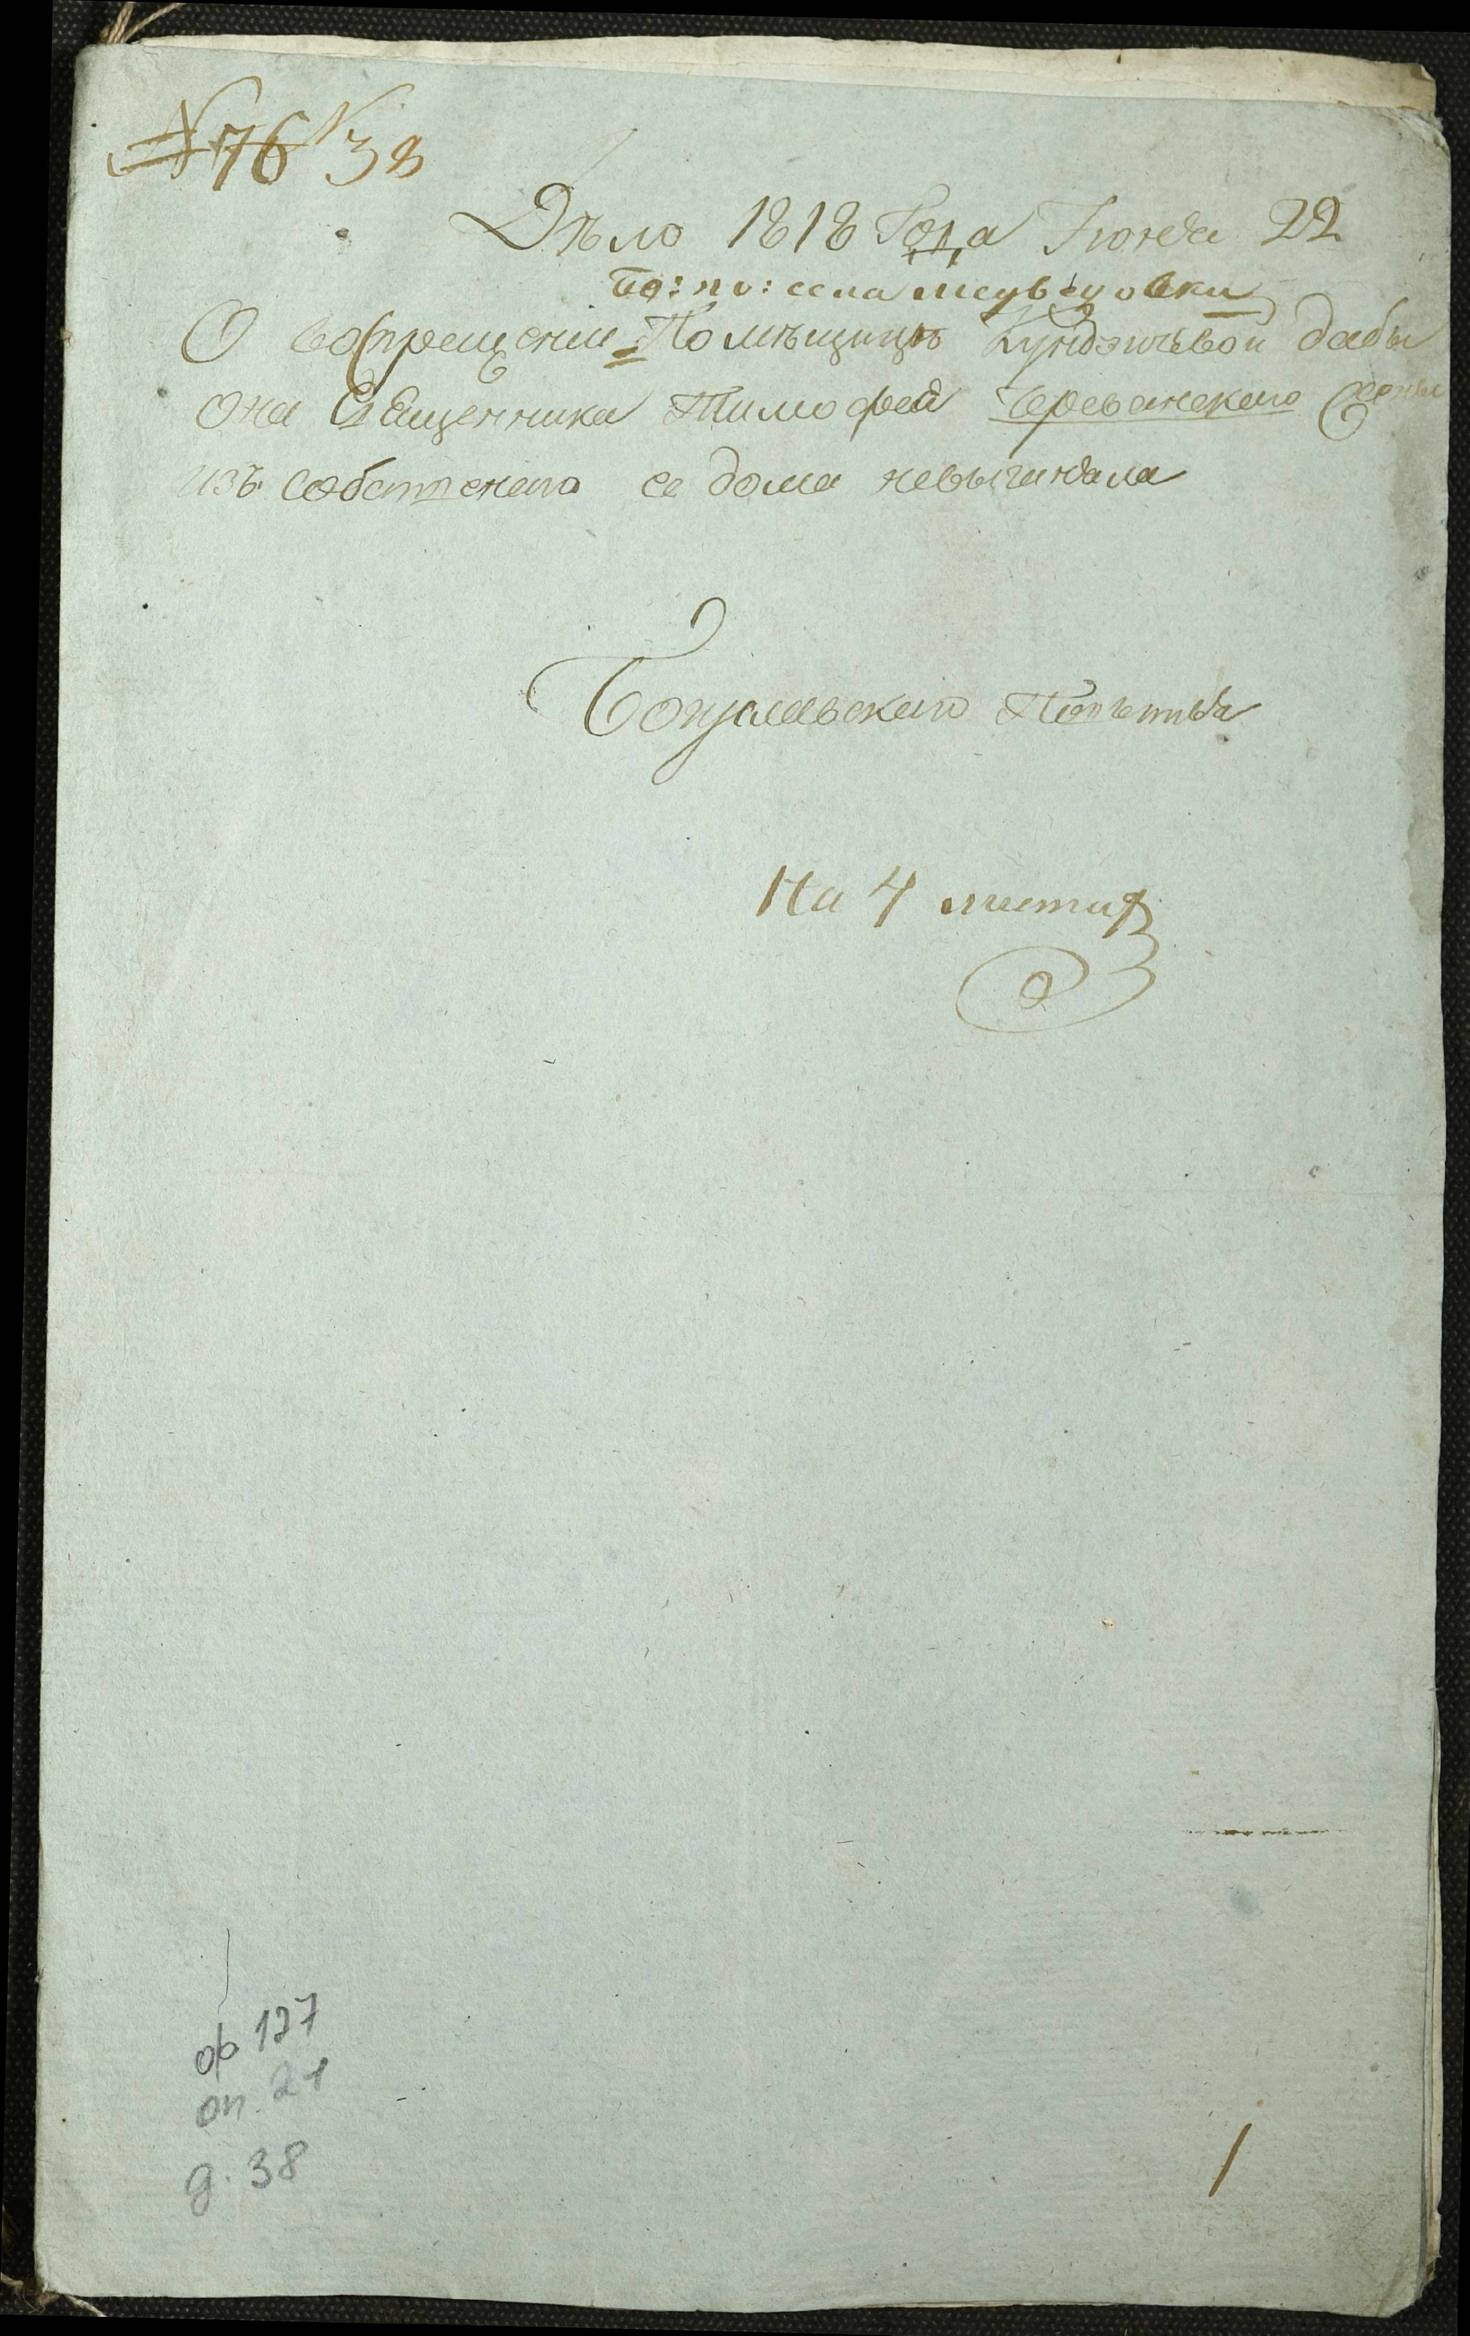 № 76 № 38
Дѣло 1818 Года Июня 22
бо: по: села Медведовки
О воспрещении Помѣщицѣ дабы
она Священника Тимофея Череванского
изъ собственаго ее дома невыгиняла
Богуславского Повѣта
На 4 листах
ф 127
оп. 21
д. 38
1